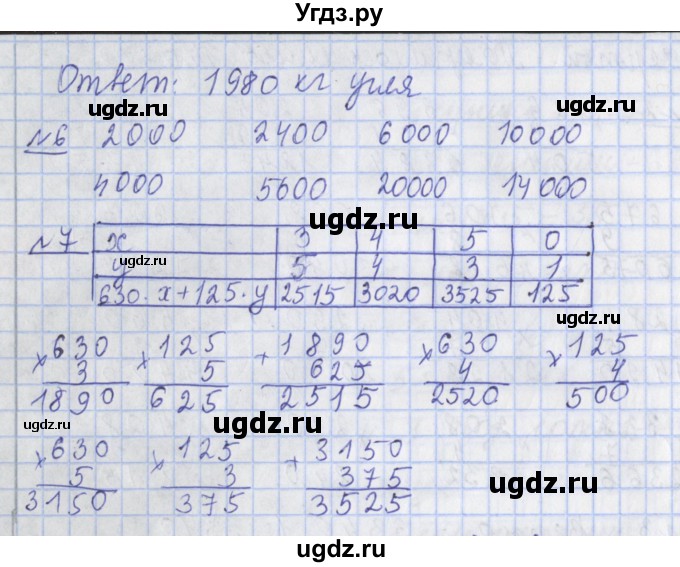 Угдз.ру
Ответ: 1980 кг угля
ugdz.ru ugdz.ru
№6 2000 2400 6000 10000
4000 5600 20000 14000
ugdz.ru
№7 x 3 4 5 0
y 5 4 3 1
ugdz.ru
630·x+125·y 2515 3020 3525 125
×630 ×125 +1890 ×630 ×125
3 5 625 4 4
1890 625 2515 2520 500
ugdz.ru ugdz.ru ugdz.ru
×630 ×125 +3150
5 3 375
3150 375 3525
ugdz.ru
ugdz.ru